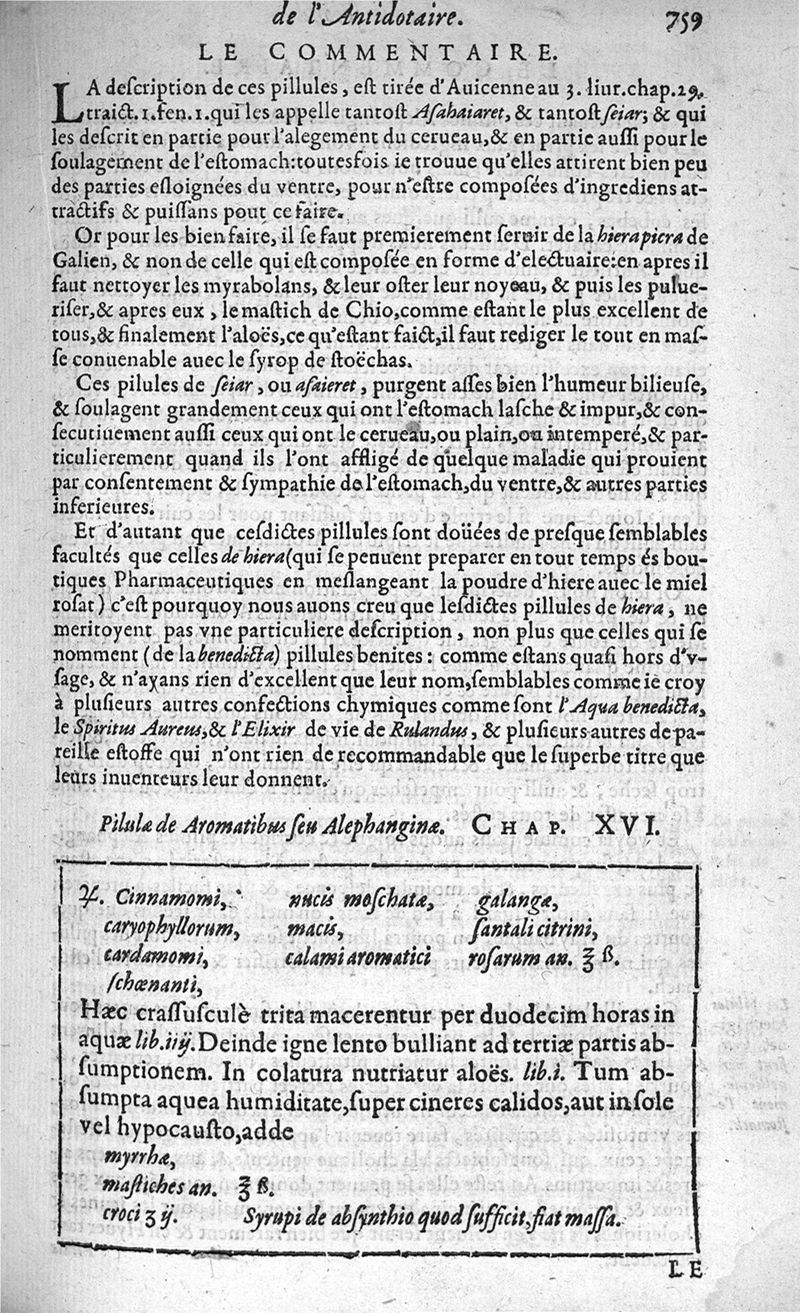 de l'Antidotaire. 759
LE COMMENTAIRE.
LA deſcription de ces pillules, eſt tirée d'Auicenne au 3. liur. chap. 29.
traict. 1. fen. 1. qui les appelle tantoſt Aſahaiaret, & tantoſt ſeiar; & qui
les deſcrit en partie pour l'alegement du cerueau, & en partie auſſi pour le
ſoulagement de l'eſtomach: toutesfois ie trouue qu'elles attirent bien peu
des parties eſloignées du ventre, pour n'eſtre compoſées d'ingrediens at-
tractifs & puiſſans pout ce faire.
Or pour les bien faire, il ſe faut premierement ſeruir de la hierapicra de
Galien, & non de celle qui eſt compoſée en forme d'electuaire: en apres il
faut nettoyer les myrabolans, & leur oſter leur noyeau, & puis les pulue-
riſer, & apres eux, le maſtich de Chio, comme eſtant le plus excellent de
tous, & finalement l'aloës, ce qu'eſtant faict, il faut rediger le tout en maſ-
ſe conuenable auec le ſyrop de ſtoëchas.
Ces pilules de ſeiar, ou aſaieret, purgent aſſes bien l'humeur bilieuſe,
& ſoulagent grandement ceux qui ont l'eſtomach laſche & impur, & con-
ſecutiuement auſſi ceux qui ont le cerueau, ou plain, ou intemperé, & par-
ticulierement quand ils l'ont affligé de quelque maladie qui prouient
par conſentement & ſympathie de l'eſtomach, du ventre, & autres parties
inferieures.
Et d'autant que ceſdictes pillules ſont doüées de preſque ſemblables
facultés que celles de hiera (qui ſe peuuent preparer en tout temps és bou-
tiques Pharmaceutiques en meſlangeant la poudre d'hiere auec le miel
roſat) c'eſt pourquoy nous auons creu que leſdictes pillules de hiera, ne
meritoyent pas vne particuliere deſcription, non plus que celles qui ſe
nomment (de la benedicta) pillules benites: comme eſtans quaſi hors d'v-
ſage, & n'ayans rien d'excellent que leur nom, ſemblables comme ie croy
à pluſieurs autres confections chymiques comme ſont l'Aqua benedicta,
le Spiritus Aureus, & l'Elixir de vie de Rulandus, & pluſieurs autres de pa-
reille eſtoffe qui n'ont rien de recommandable que le ſuperbe titre que
leurs inuenteurs leur donnent.
Pilulæ de Aromatibus ſeu Alephanginæ. CHAP. XVI.
♃. Cinnamomi, nucis moſchatæ, galangæ,
caryophyllorum, macis, ſantali citrini,
cardamomi, calami aromatici roſarum an. ℥ ß.
ſchœnanti,
Hæc craſſuſculè trita macerentur per duodecim horas in
aquæ lib. iiij. Deinde igne lento bulliant ad tertiæ partis ab-
ſumptionem. In colatura nutriatur aloës. lib. i. Tum ab-
ſumpta aquea humiditate, ſuper cineres calidos, aut in ſole
vel hypocauſto, adde
myrrhæ,
maſtiches an. ℥ ß.
croci ʒ ij. Syrupi de abſynthio quod ſufficit, fiat maſſa.
LE